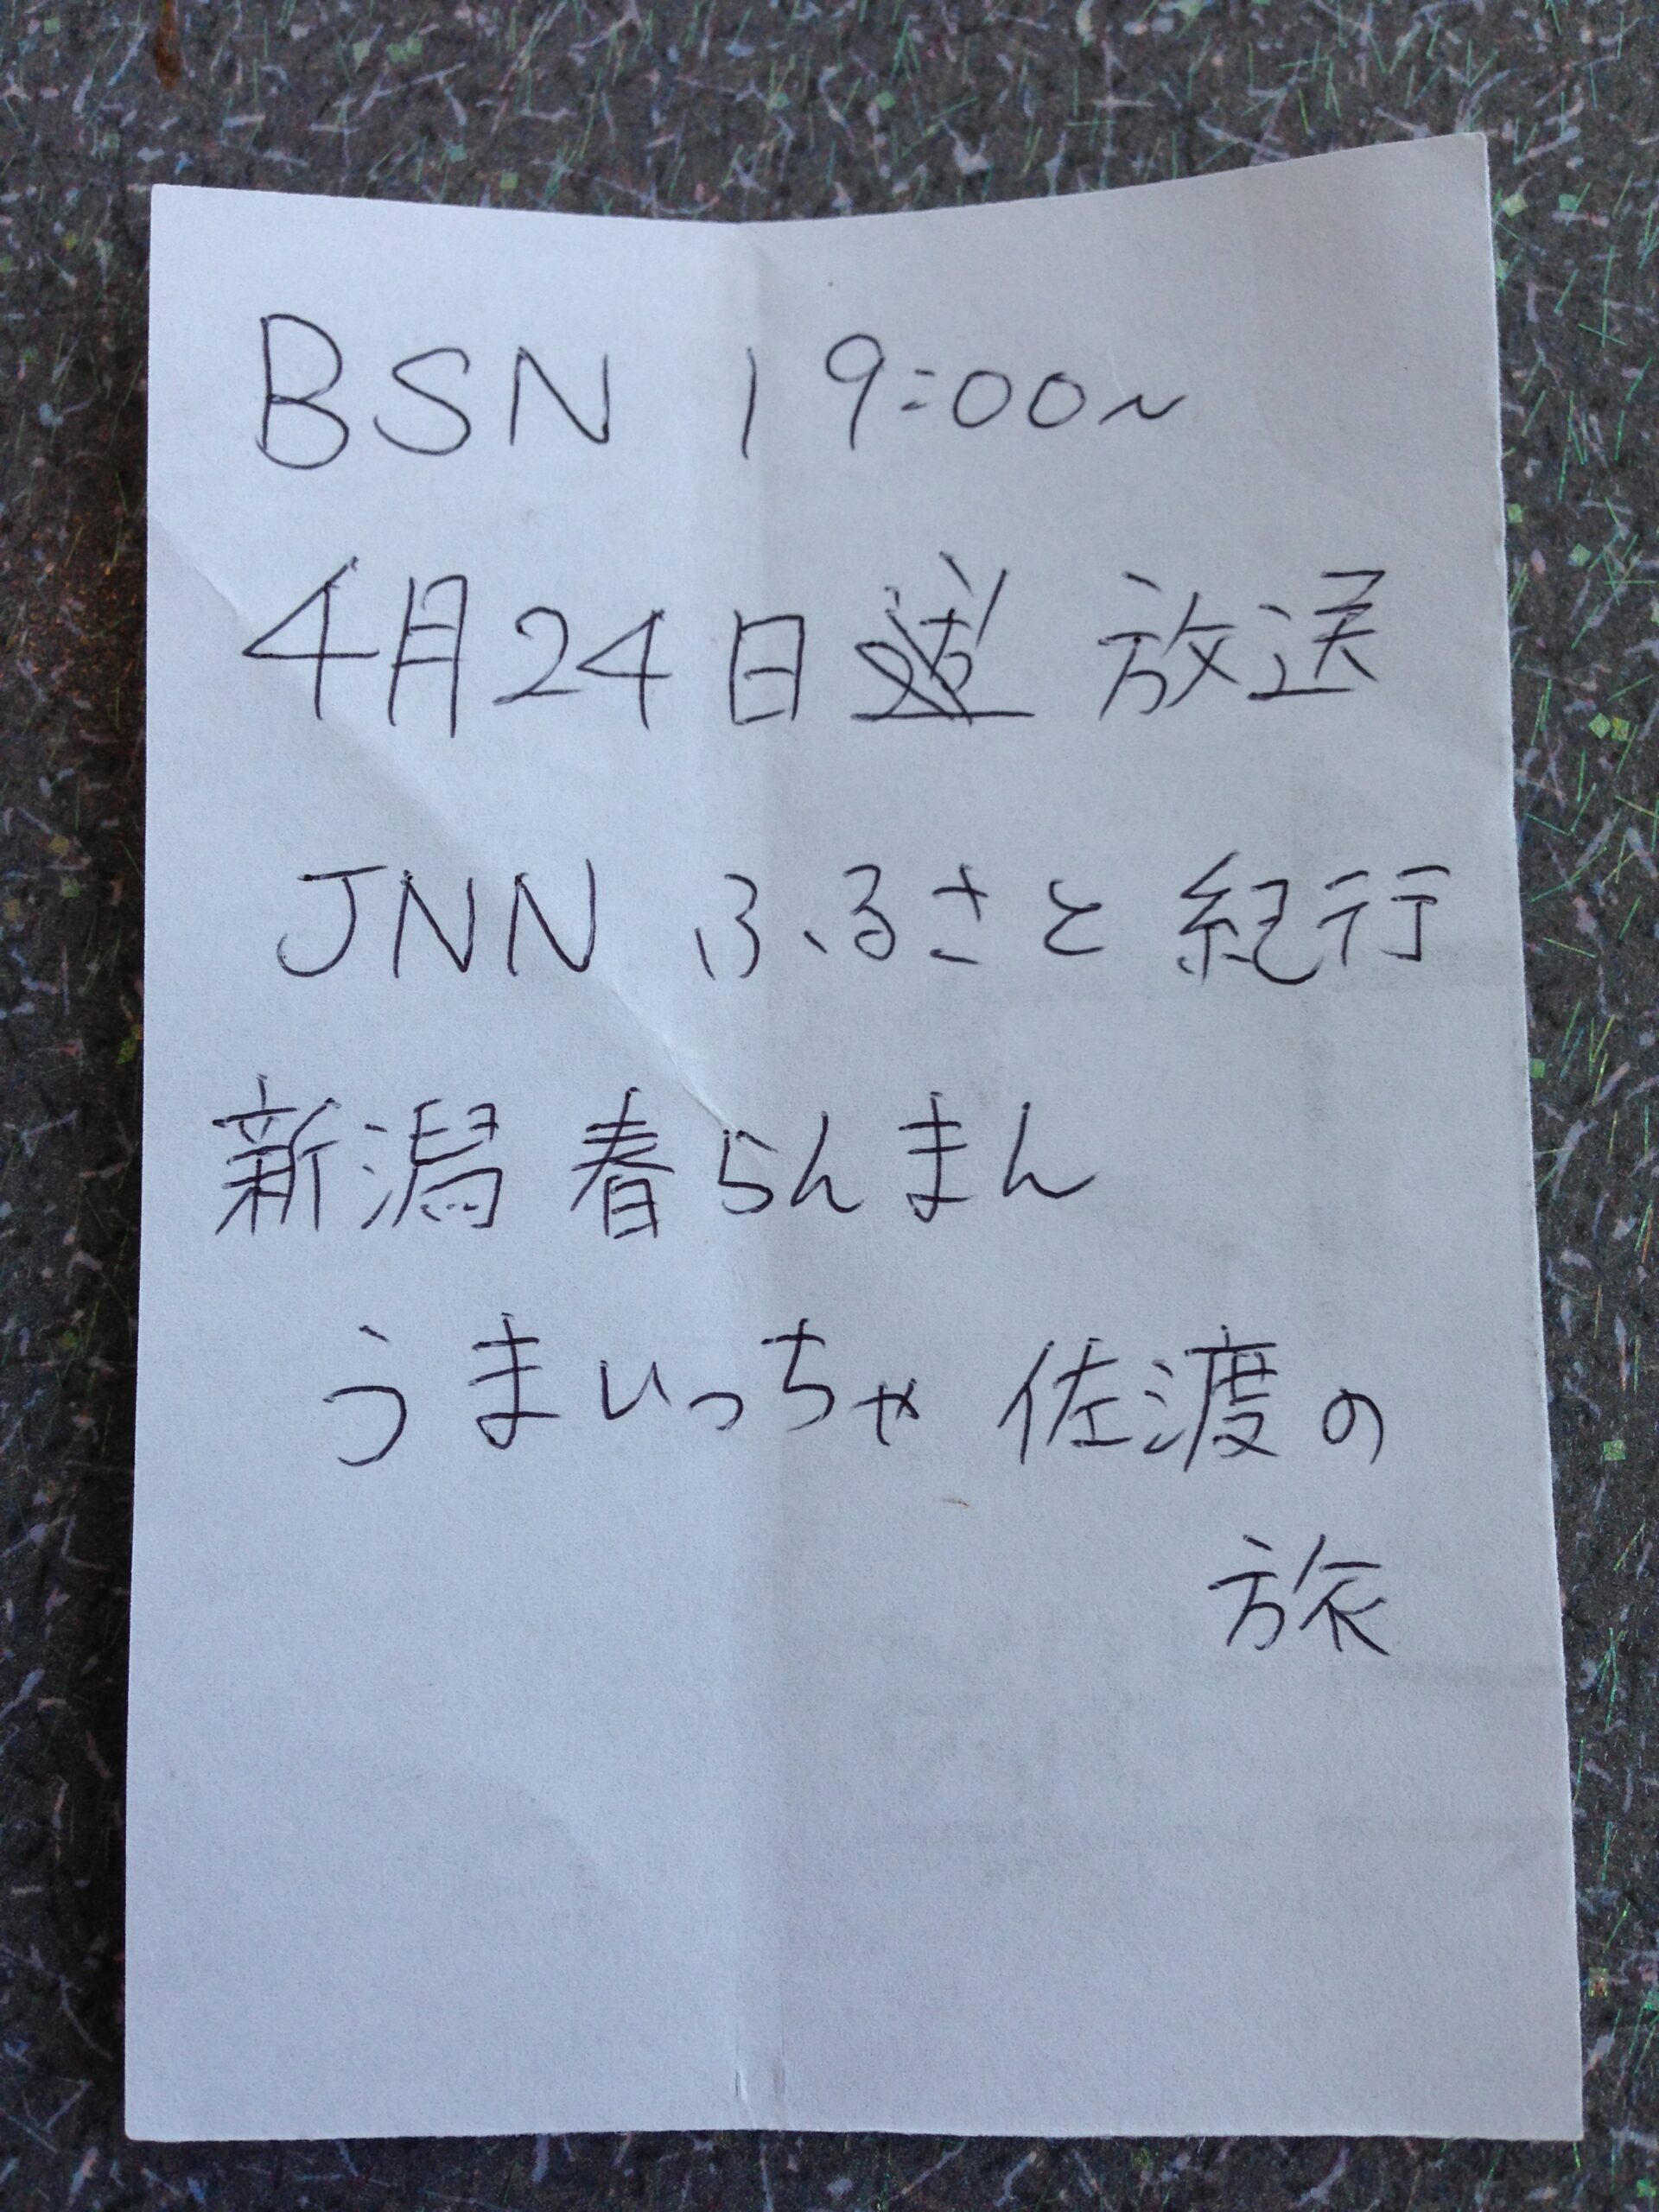 BSN 19:00~
4月24日 放送
JNN ふるさと紀行
新潟 春らんまん
うまいっちゃ 佐渡の
旅